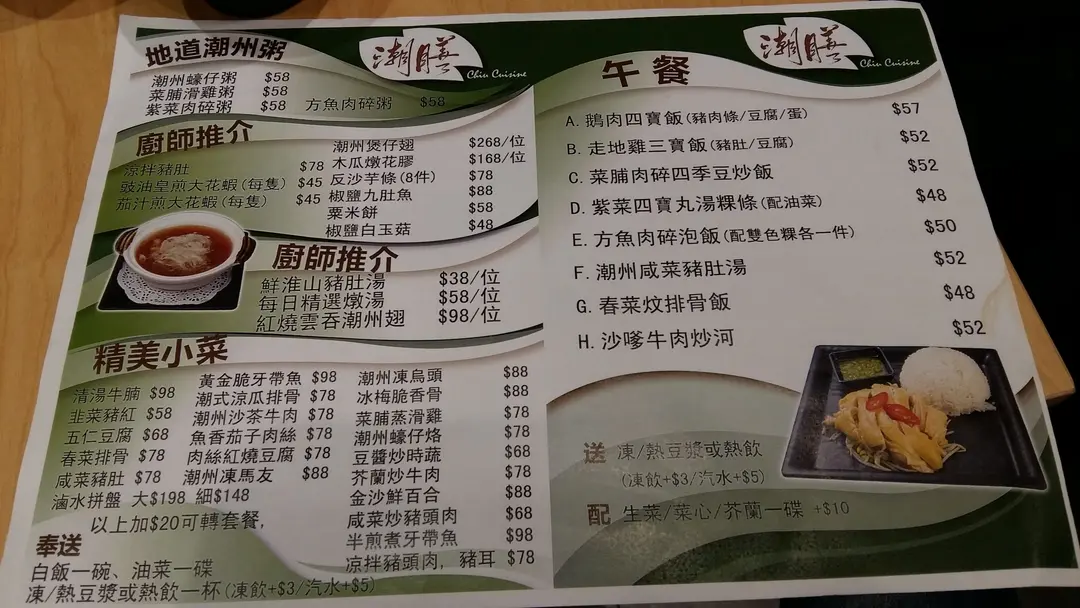 地道潮州粥
潮州蠔仔粥 $58
菜脯滑雞粥 $58
紫菜肉碎粥 $58 方魚肉碎粥 $58
潮膳
Chiu Cuisine
廚師推介
涼拌豬肚 $78
豉油皇煎大花蝦(每隻) $45
茄汁煎大花蝦(每隻) $45
潮州煲仔翅 $268/位
木瓜燉花膠 $168/位
反沙芋條(8件) $78
椒鹽九肚魚 $88
粟米餅 $58
椒鹽白玉菇 $48
廚師推介
鮮淮山豬肚湯 $38/位
每日精選燉湯 $58/位
紅燒雲吞潮州翅 $98/位
精美小菜
清湯牛腩 $98
韭菜豬紅 $58
五仁豆腐 $68
春菜排骨 $78
咸菜豬肚 $78
滷水拼盤 大$198 細$148
黃金脆牙帶魚 $98
潮式涼瓜排骨 $78
潮州沙茶牛肉 $78
魚香茄子肉絲 $78
肉絲紅燒豆腐 $78
潮州凍馬友 $88
潮州凍烏頭 $88
冰梅脆香骨 $88
菜脯蒸滑雞 $78
潮州蠔仔烙 $78
豆醬炒時蔬 $68
芥蘭炒牛肉 $78
金沙鮮百合 $88
咸菜炒豬頭肉 $68
半煎煮牙帶魚 $98
涼拌豬頭肉, 豬耳 $78
以上加$20可轉套餐,
奉送
白飯一碗、油菜一碟
凍/熱豆漿或熱飲一杯(凍飲+$3/汽水+$5)
午餐
潮膳
Chiu Cuisine
A. 鵝肉四寶飯(豬肉條/豆腐/蛋) $57
B. 走地雞三寶飯(豬肚/豆腐) $52
C. 菜脯肉碎四季豆炒飯 $52
D. 紫菜四寶丸湯粿條(配油菜) $48
E. 方魚肉碎泡飯(配雙色粿各一件) $50
F. 潮州咸菜豬肚湯 $52
G. 春菜炆排骨飯 $48
H. 沙嗲牛肉炒河 $52
送 凍/熱豆漿或熱飲
(凍飲+$3/汽水+$5)
配 生菜/菜心/芥蘭一碟 +$10